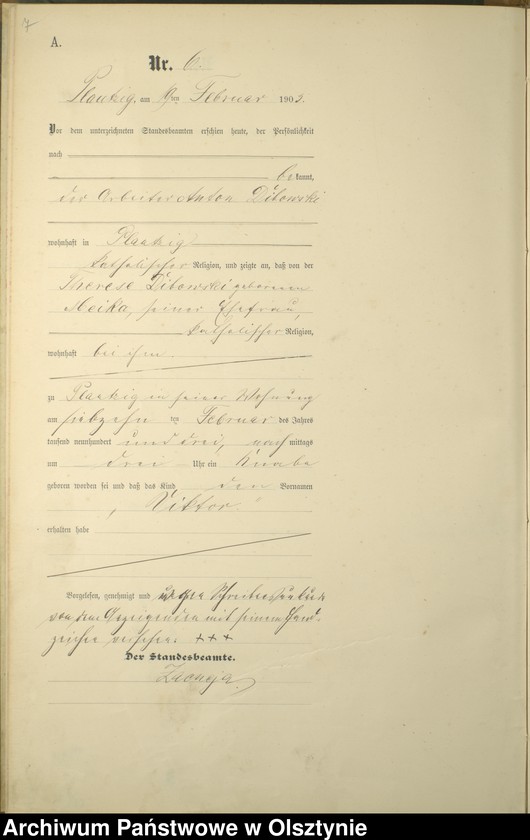 7
A.
Nr. 6.
Plautzig, am ten Februar 1903.
Vor dem unterzeichneten Standesbeamten erschien heute, der Persönlichkeit
nach
bekannt,
der Arbeiter Anton Dibowski
wohnhaft in Plautzig
katholischer Religion, und zeigte an, daß von der
Therese Dibowski geborenen
Meika, seiner Ehefrau,
katholischer Religion,
wohnhaft bei ihm
zu Plautzig in seiner Wohnung
am siebzehn ten Februar des Jahres
tausend neunhundert und drei, nachmittags
um drei Uhr ein Knabe
geboren worden sei und daß das Kind den Vornamen
Viktor
erhalten habe
Vorgelesen, genehmigt und wegen Schreibensunkunde
von dem Anzeigenden mit seinem Hand-
zeichen versehen. +++
Der Standesbeamte.
Archiwum Państwowe w Olsztynie